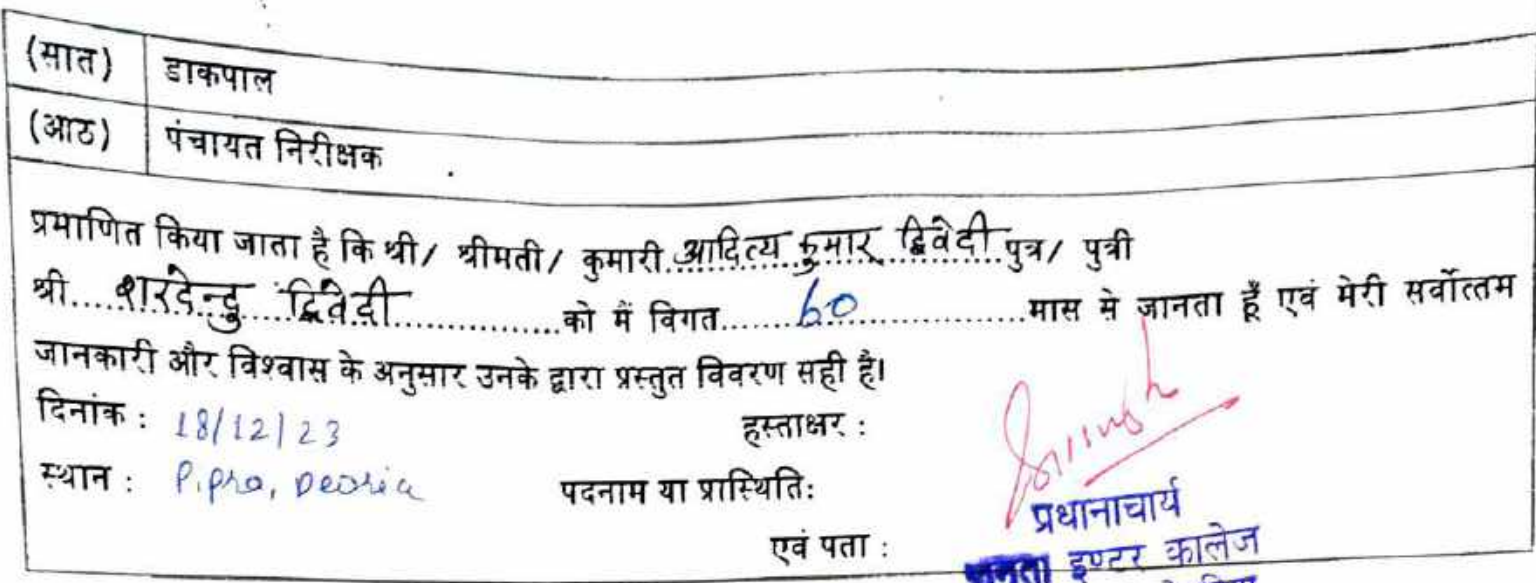 (सात) डाकपाल
(आठ) पंचायत निरीक्षक
प्रमाणित किया जाता है कि श्री/ श्रीमती/ कुमारी आदित्य कुमार द्विवेदी पुत्र/ पुत्री
श्री.... शरदेन्दु द्विवेदी ................को मैं विगत.......60....................मास से जानता हूँ एवं मेरी सर्वोत्तम
जानकारी और विश्वास के अनुसार उनके द्वारा प्रस्तुत विवरण सही है।
दिनांक : 18/12/23 हस्ताक्षर :
स्थान : Pipra, Deoria पदनाम या प्रास्थिति:
प्रधानाचार्य
एवं पता :
इण्टर कालेज